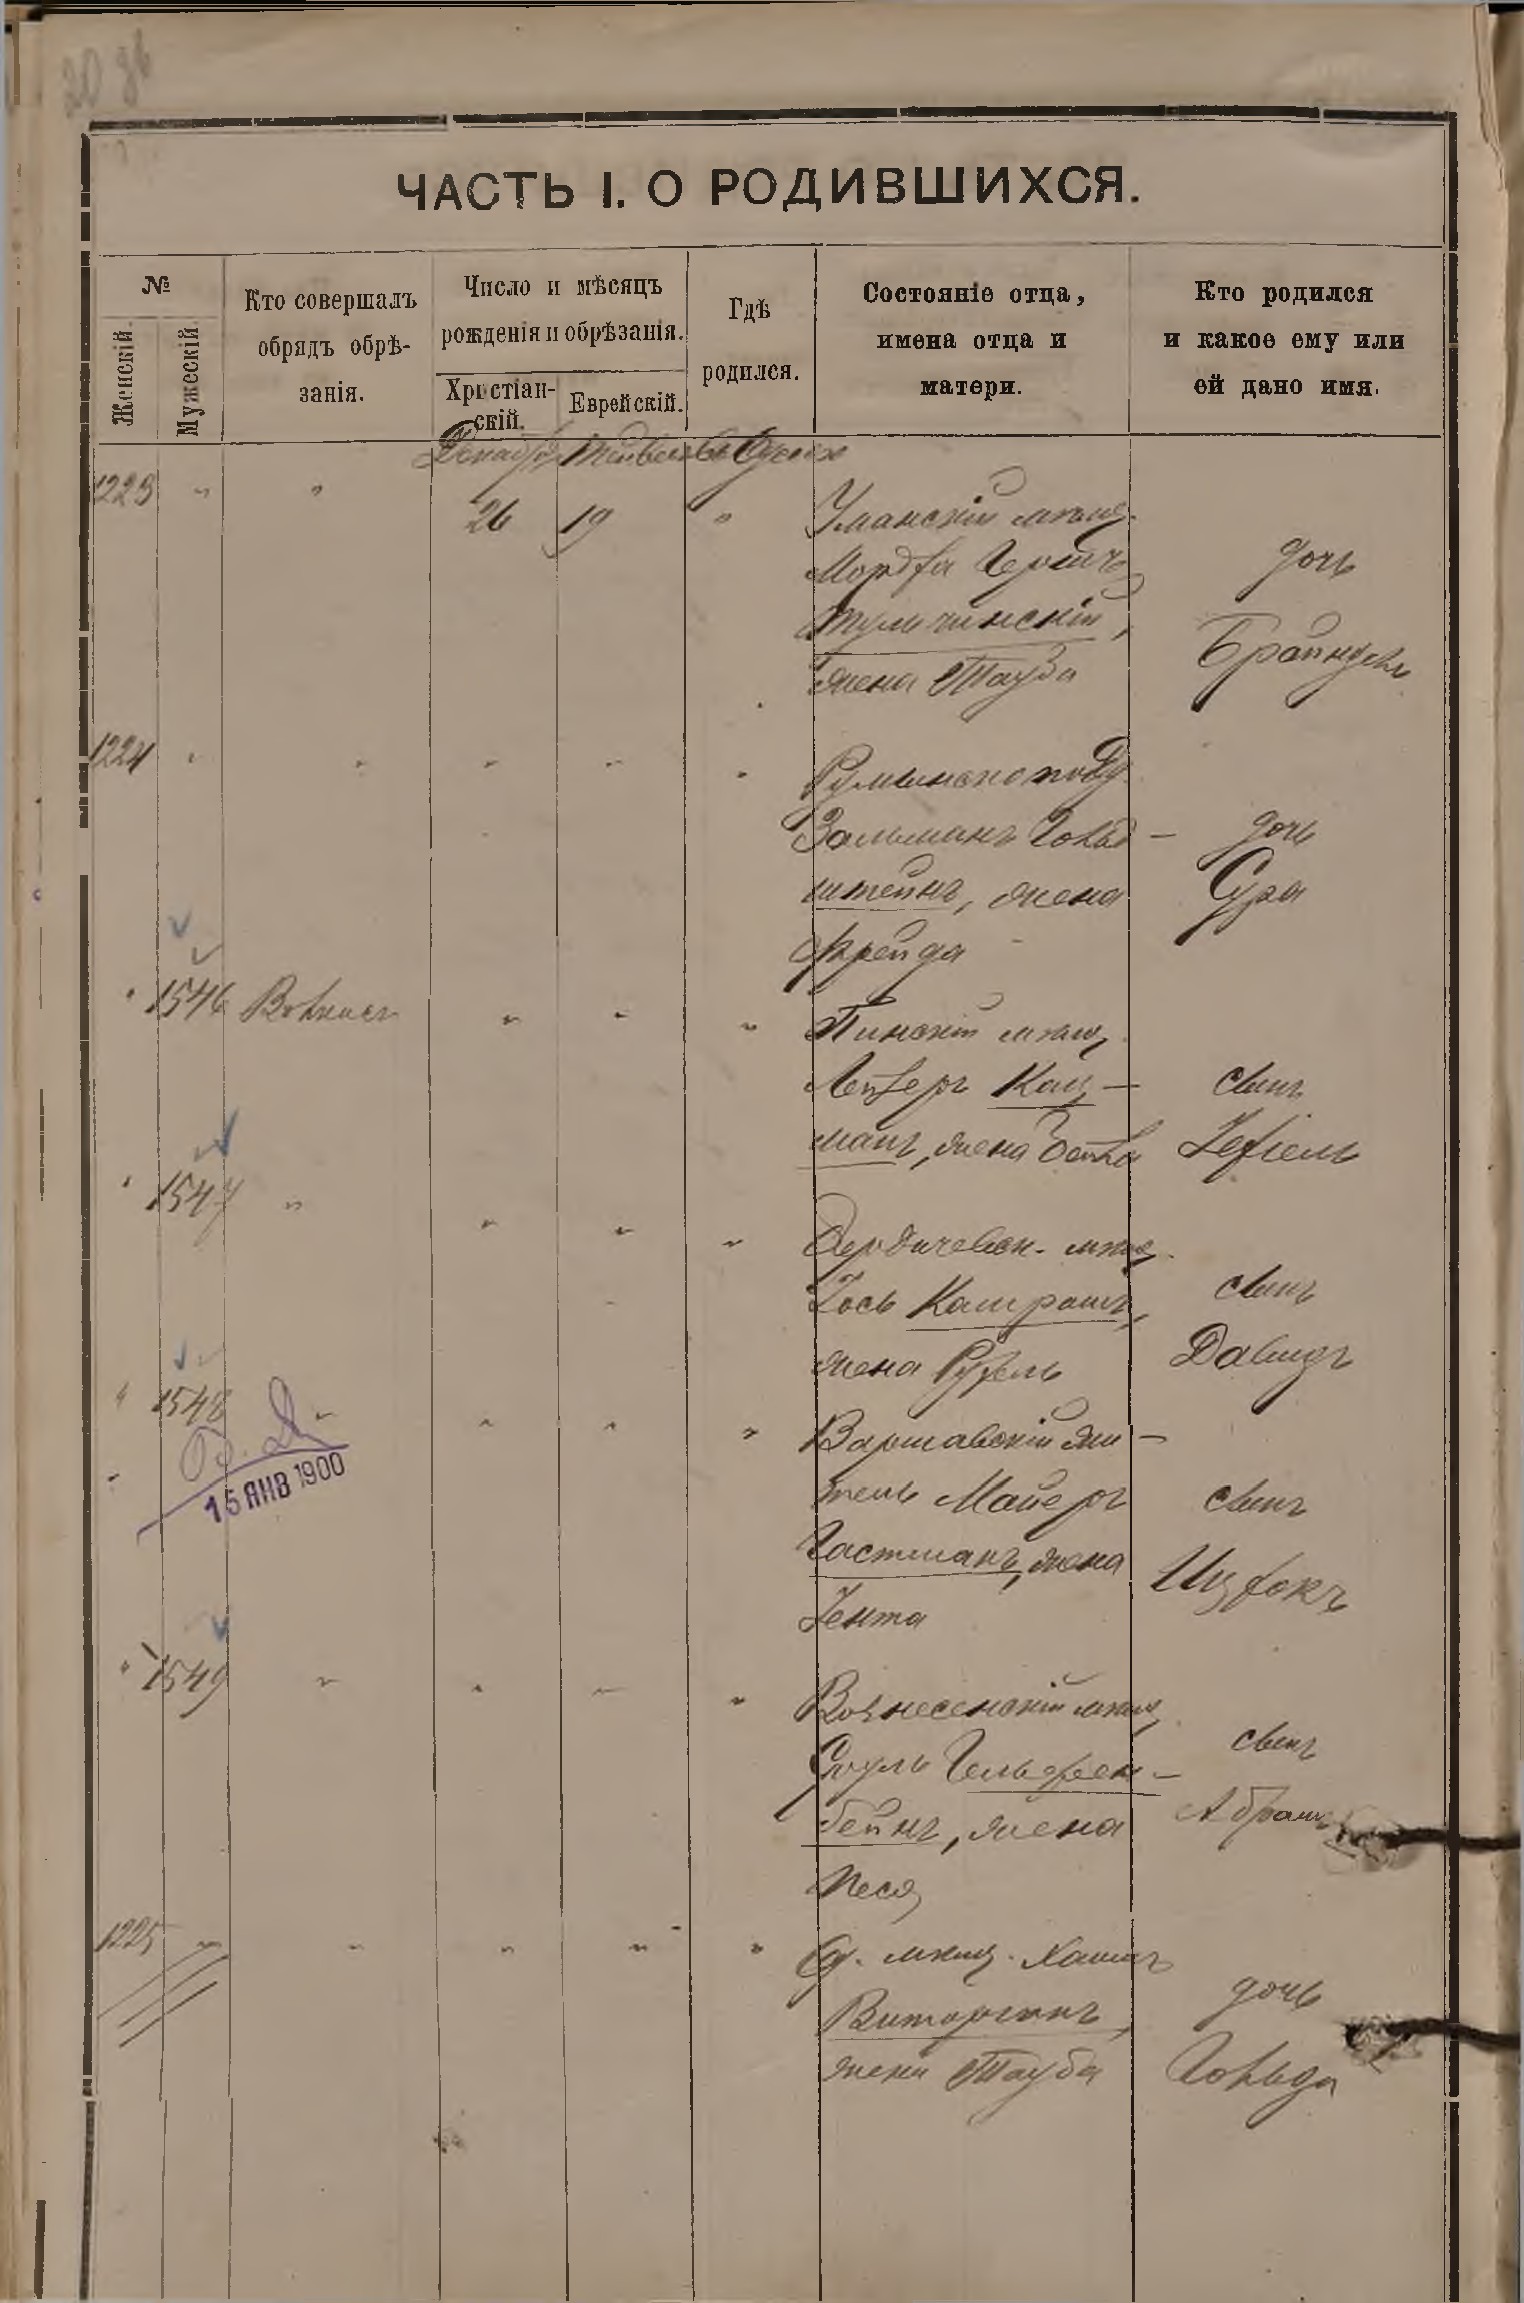 ЧАСТЬ I. О РОДИВШИХСЯ.
№
Женскій.
Мужескій.
Кто совершалъ
обрядъ обрѣ-
занія.
Число и мѣсяцъ
рожденія и обрѣзанія.
Христіан-
скій.
Еврейскій.
Гдѣ
родился.
Состояніе отца,
имена отца и
матери.
Кто родился
и какое ему или
ей дано имя.
Декабрь Тейвесъ Одесса
1223 " " 26 19 " Уманскій мѣщ.
Мордка Гершъ
Тульчинскій,
жена Тауба
дочь
Брайндель
1224 " " " " " Румынскопод.
Зальманъ Гольд-
штейнъ, жена
Фрейда
дочь
Сура
" 1546 " " " Пинскій мѣщ.
Лейзеръ Кац-
манъ, жена Бейла
сынъ
" 1547 " " " " Бердичевск. мѣщ.
Іось
жена Рухель
сынъ
Давидъ
" 1548 " " " " Варшавскій жи-
тель Майеръ
Гастманъ, жена
Іента
сынъ
Ицхокъ
15 ЯНВ 1900
" 1549 " " " " Вознесенскій мѣщ.
Сруль Гельфен-
бейнъ, жена
Песя
сынъ
Абрамъ
1225 " " " " " Од. мѣщ. Хаимъ
жена Тауба
дочь
Гольда